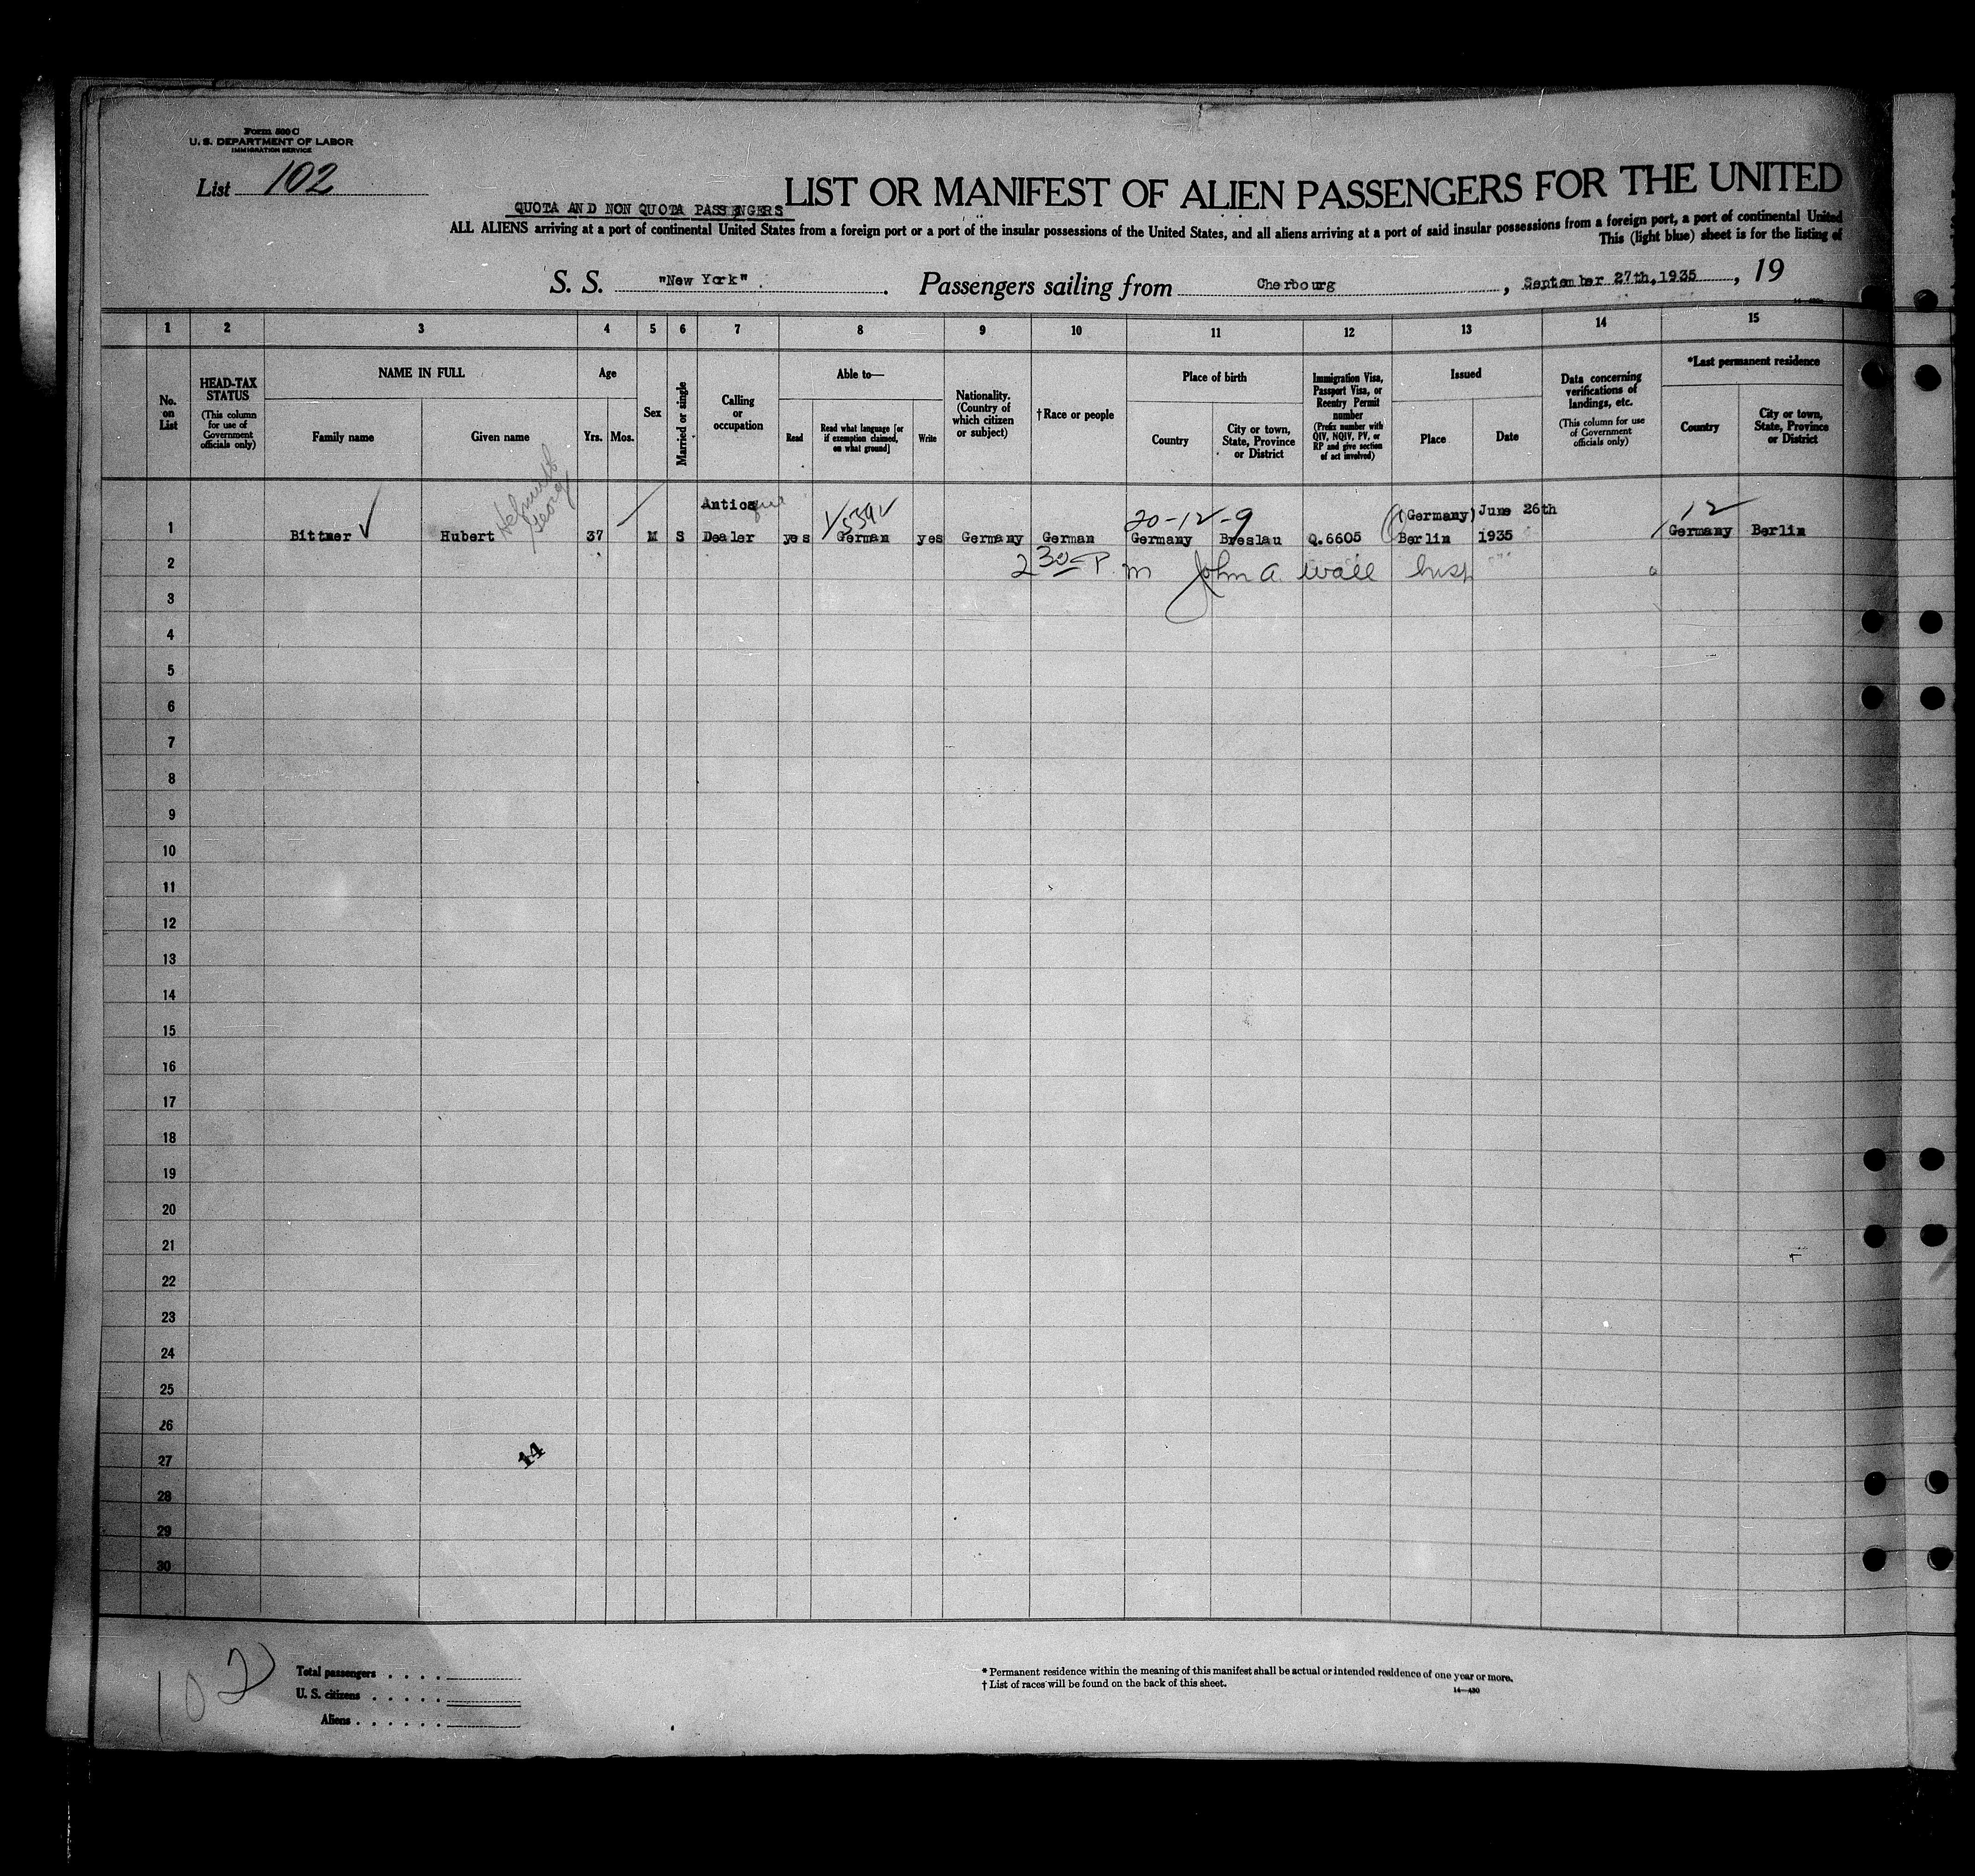 Form 500 C
U. S. DEPARTMENT OF LABOR
IMMIGRATION SERVICE
List 102
LIST OR MANIFEST OF ALIEN PASSENGERS FOR THE UNITED
QUOTA AND NON QUOTA PASSENGERS
ALL ALIENS arriving at a port of continental United States from a foreign port or a port of the insular possessions of the United States, and all aliens arriving at a port of said insular possessions from a foreign port, a port of continental United
This (light blue) sheet is for the listing of
S. S. "New York". Passengers sailing from Cherbourg, September 27th, 1935, 19
1 2 3 4 5 6 7 8 9 10 11 12 13 14 15
No. on List
HEAD-TAX STATUS
(This column for use of Government officials only)
NAME IN FULL
Family name Given name
Age
Yrs. Mos.
Sex
Married or single
Calling or occupation
Able to—
Read
Read what language [or if exemption claimed, on what ground]
Write
Nationality. (Country of which citizen or subject)
†Race or people
Place of birth
Country
City or town, State, Province or District
Immigration Visa, Passport Visa, or Reentry Permit number
(Prefix number with QIV, NQIV, PV, or RP and give section of act involved)
Issued
Place Date
Data concerning verifications of landings, etc.
(This column for use of Government officials only)
*Last permanent residence
Country
City or town, State, Province or District
Helmuth
Georg
Antice (Germany) June 26th
20-12-9 12
1 Bittner Hubert 37 M S Dealer yes German yes Germany German Germany Breslau Q.6605 Berlin 1935 Germany Berlin
2 2 30 P. m John A. Wall Insp
3
4
5
6
7
8
9
10
11
12
13
14
15
16
17
18
19
20
21
22
23
24
25
26
27
28
29
30
14
102
Total passengers
U. S. citizens
Aliens
* Permanent residence within the meaning of this manifest shall be actual or intended residence of one year or more.
† List of races will be found on the back of this sheet.
14—430